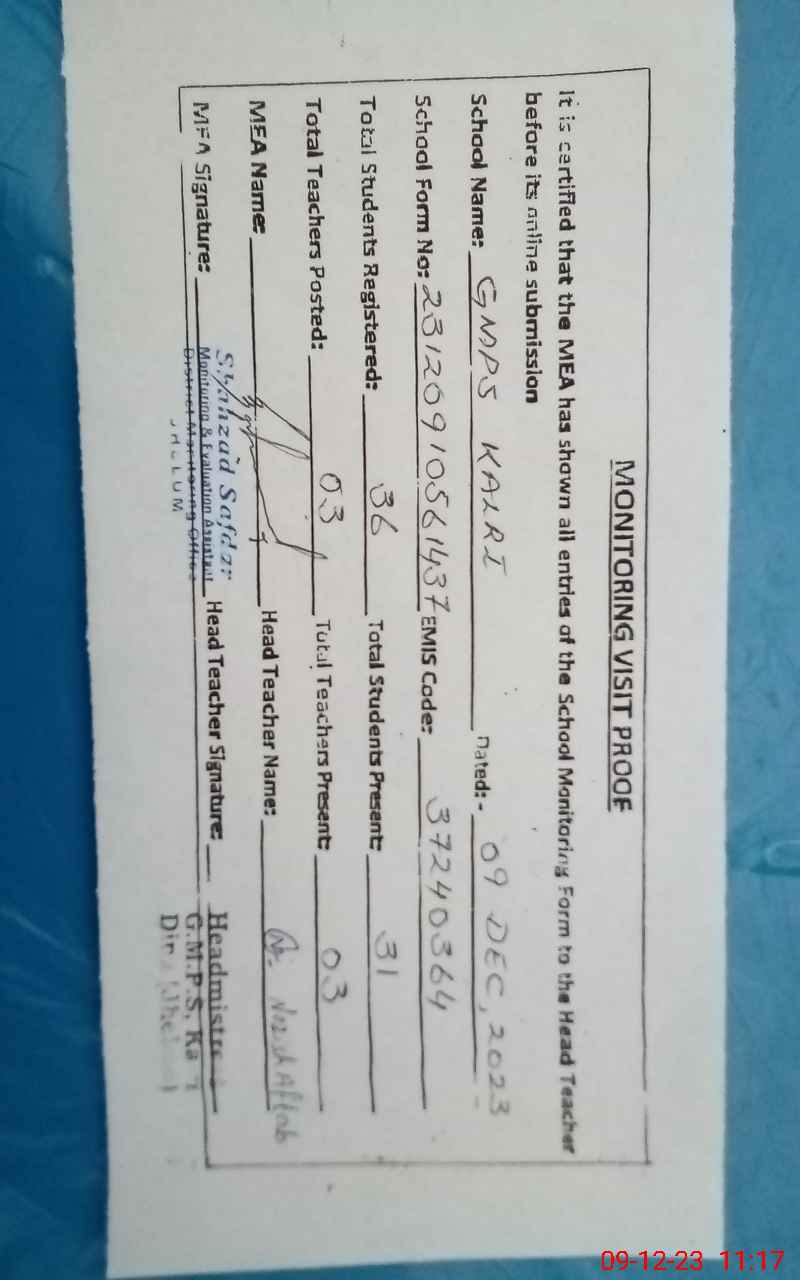 MONITORING VISIT PROOF
It is certified that the MEA has shown all entries of the School Monitoring Form to the Head Teacher
before its online submission
School Name: GMPS KALRI Dated:- 09 DEC, 2023
School Form No: 23120910561437 EMIS Code: 37240364
Total Students Registered: 36 Total Students Present: 31
Total Teachers Posted: 03 Total Teachers Present: 03
MEA Name: Head Teacher Name: Aftab
MEA Signature: Head Teacher Signature:
Shahzad Safdar
Monitoring & Evaluation Assistant
District Monitoring Office
JHELUM
Headmistress
G.M.P.S,
09-12-23 11:17